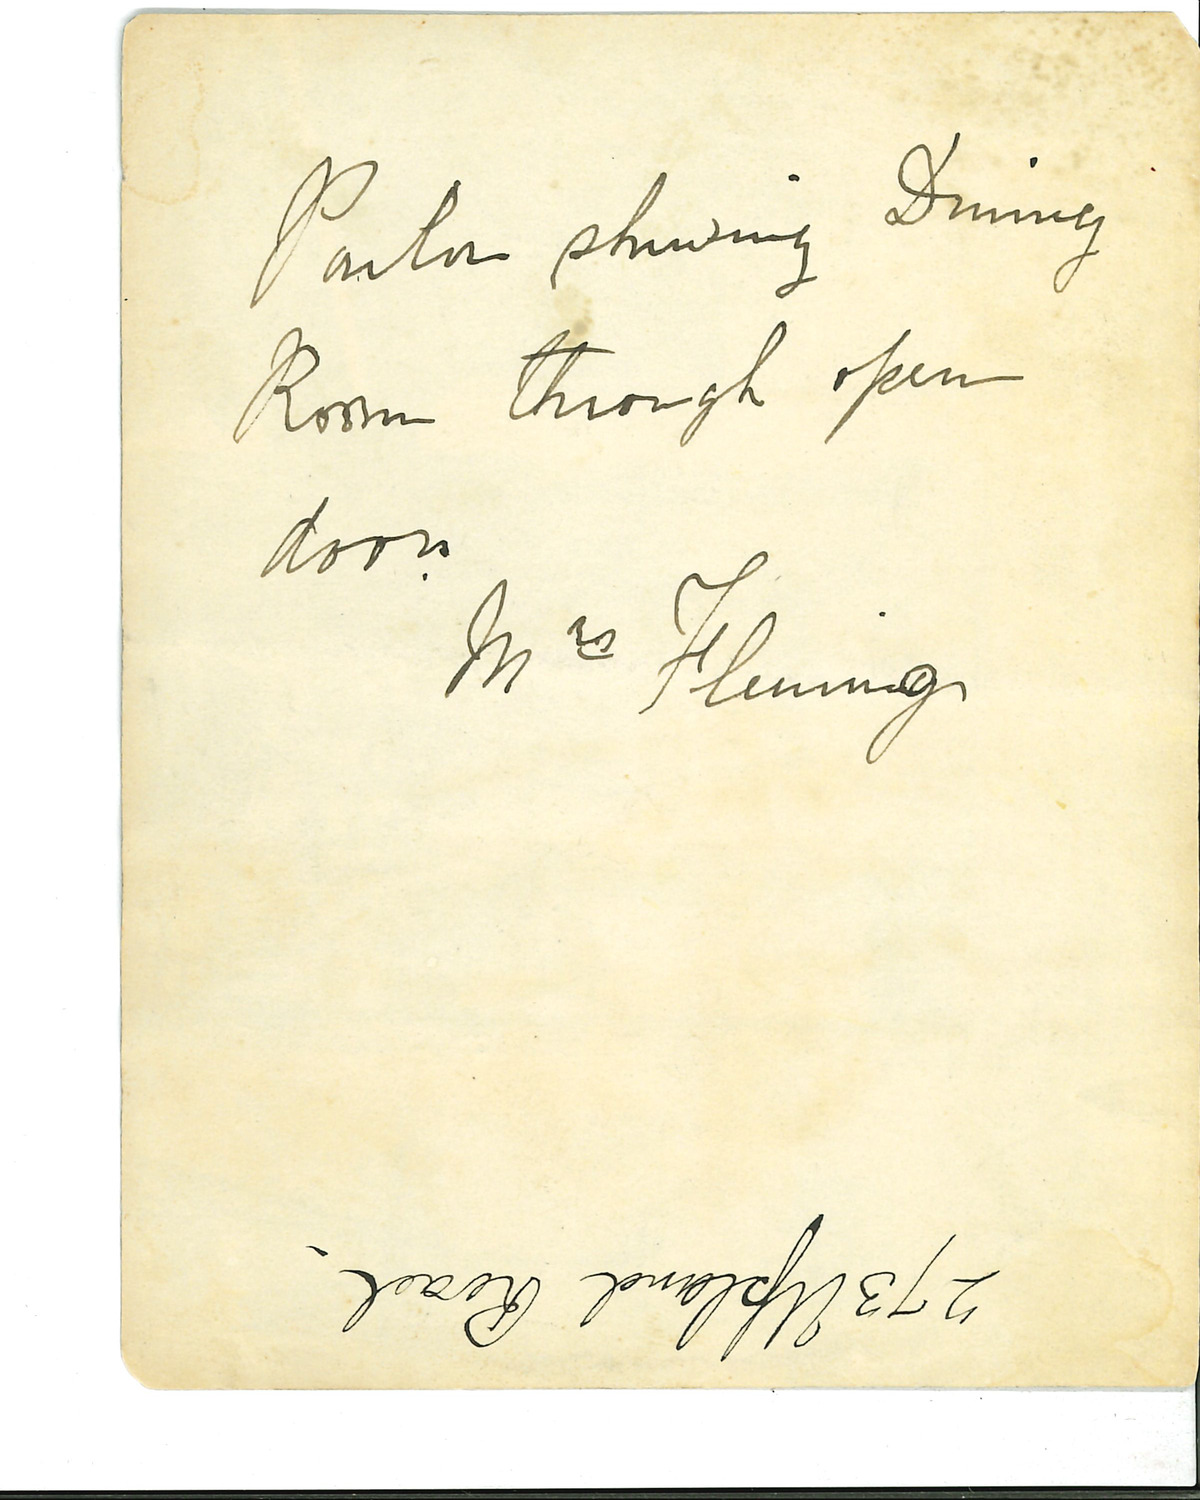 Parlor shewing Dining
Room through open
door.
Mrs Fleming
273 Upland Road.